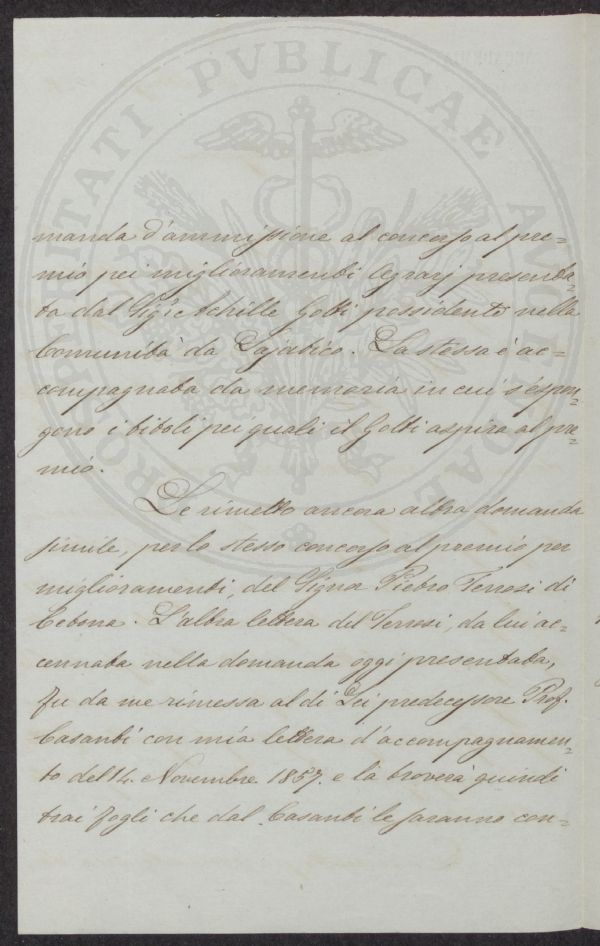 PROSPERITATI PVBLICAE AVGENDAE
manda d'ammissione al concorso al pre=
mio pei miglioramenti Agrarj presenta=
ta dal Sig.r Achille Gotti possidente nella
Comunità da Lajatico. La stessa è ac=
compagnata da memoria in cui s'éspon=
gono i titoli pei quali il Gotti aspira al pre=
mio.
Le rimetto ancora altra domanda
simile, per lo stesso concorso al premio per
miglioramenti, del Signor Pietro Terrosi di
Cetona. L'altra lettera del Terrosi, da lui ac=
cennata nella domanda oggi presentata,
fu da me rimessa al di Lei predecessore Prof.
Casanti con mia lettera d'accompagnamen=
to del 14. Novembre 1857. e la troverà quindi
trai fogli che dal Casanti le saranno con=